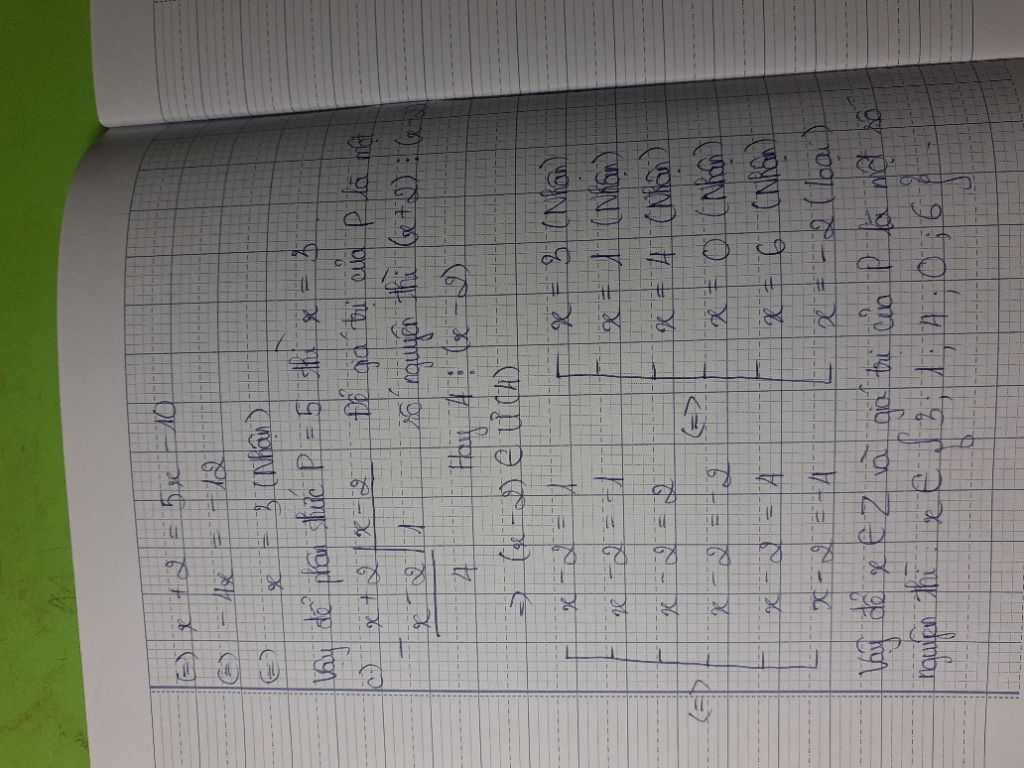 (=) x + 2 = 5x - 10
(=) - 4x = - 12
(=) x = 3 (Nhận)
Vậy để phân thức P = 5 thì x = 3
c) x + 2 | x - 2 Để giá trị của P là một
- x - 2 | 1 số nguyên thì (x + 2) ⋮ (x - 2)
4 Hay 4 ⋮ (x - 2)
=> (x - 2) ∈ Ư(4)
x - 2 = 1 x = 3 (Nhận)
x - 2 = - 1 x = 1 (Nhận)
x - 2 = 2 x = 4 (Nhận)
(=>) x - 2 = - 2 (=>) x = 0 (Nhận)
x - 2 = 4 x = 6 (Nhận)
x - 2 = - 4 x = - 2 (Loại)
Vậy để x ∈ Z và giá trị của P là một số
nguyên thì x ∈ {3; 1; 4; 0; 6}